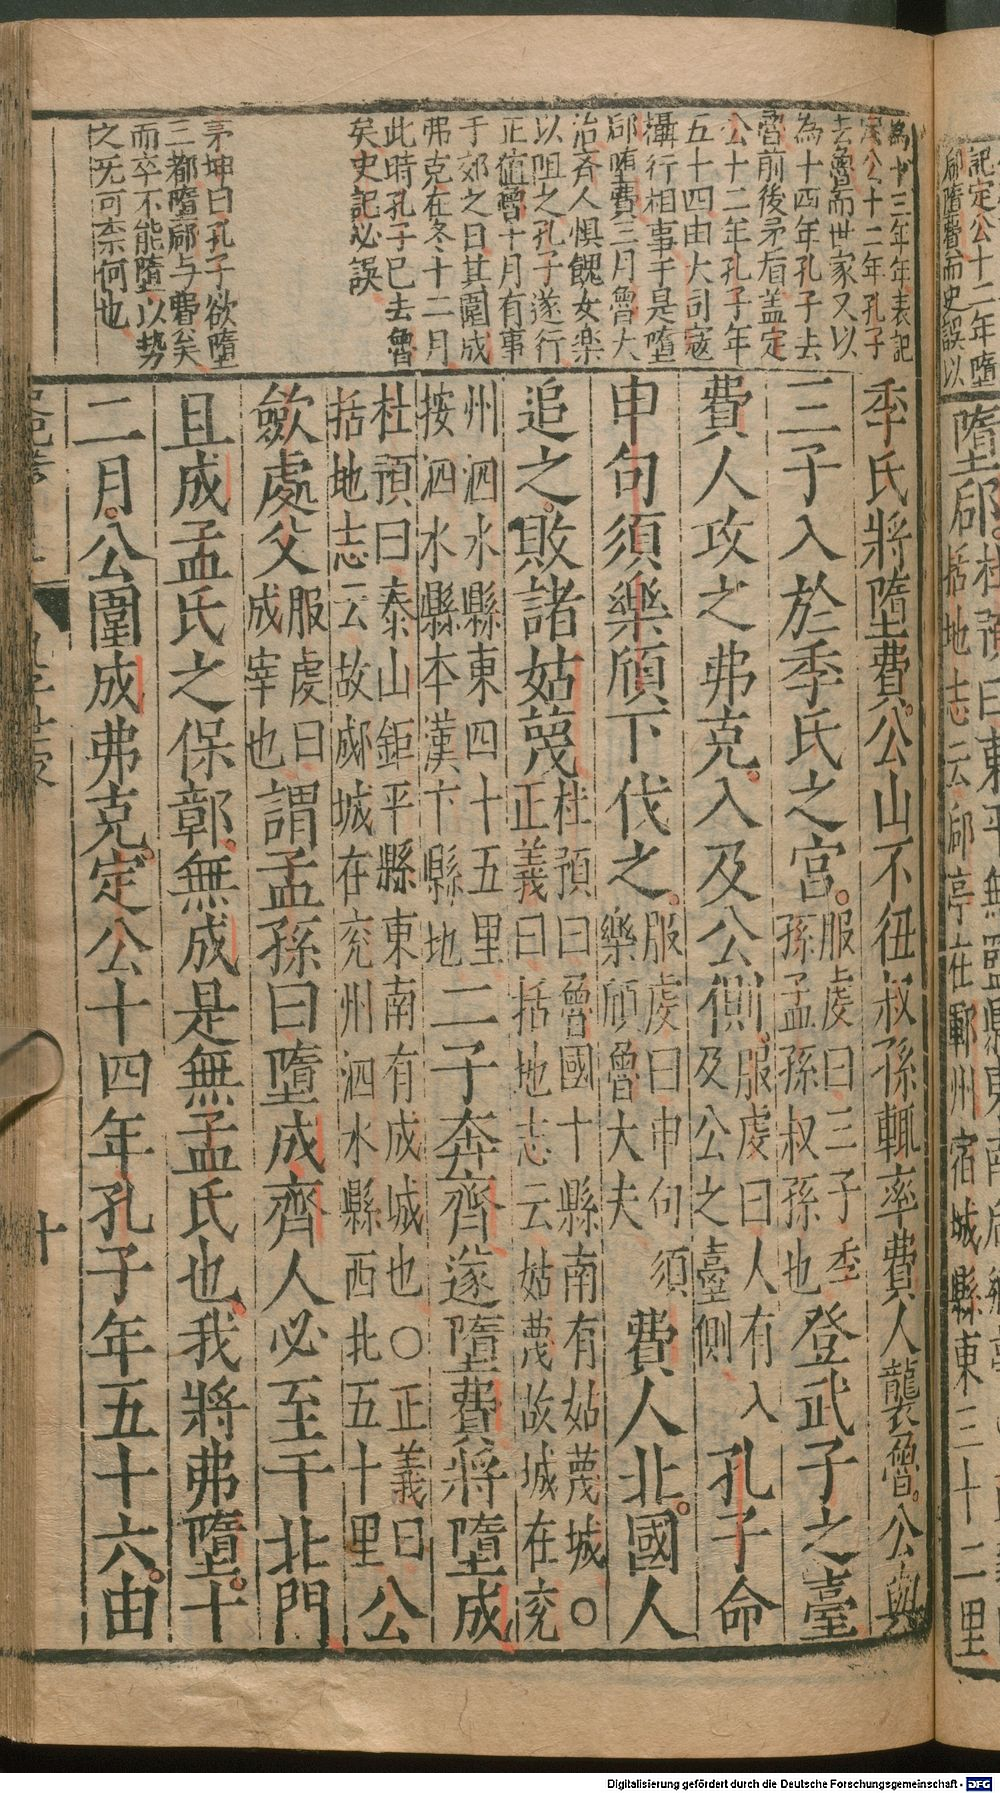 為十三年年表記
定公十二年孔子
去魯而世家又以
為十四年孔子去
魯前後矛盾盖定
公十二年孔子年
五十四由大司寇
攝行相事于是墮
郈墮費三月魯大
治齊人懼餽女楽
以阻之孔子遂行
正值魯十月有事
于郊之日其圍成
弗克在冬十二月
此時孔子已去魯
矣史記必誤
茅坤曰孔子欲墮
三都墮郈与費矣
而卒不能墮以势
之无可奈何也
季氏將墮費公山不狃叔孫輒率費人襲魯公與
三子入於季氏之宮服虔曰三子季孫孟孫叔孫也登武子之臺
費人攻之弗克入及公側服虔曰人有入及公之臺側孔子命
申句須樂頎下伐之服虔曰申句須樂頎魯大夫費人北國人
追之敗諸姑蔑杜預曰魯國十縣南有姑蔑城○正義曰括地志云姑蔑故城在兖
州泗水縣東四十五里按泗水縣本漢卞縣地二子奔齊遂墮費將墮成
杜預曰泰山鉅平縣東南有成城也○正義曰括地志云故郕城在兖州泗水縣西北五十里公
歛處父服虔曰成宰也謂孟孫曰墮成齊人必至于北門
且成孟氏之保鄣無成是無孟氏也我將弗墮十
二月公圍成弗克定公十四年孔子年五十六由
十
記定公十二年墮
郈墮費而史誤以
Digitalisierung gefördert durch die Deutsche Forschungsgemeinschaft - DFG